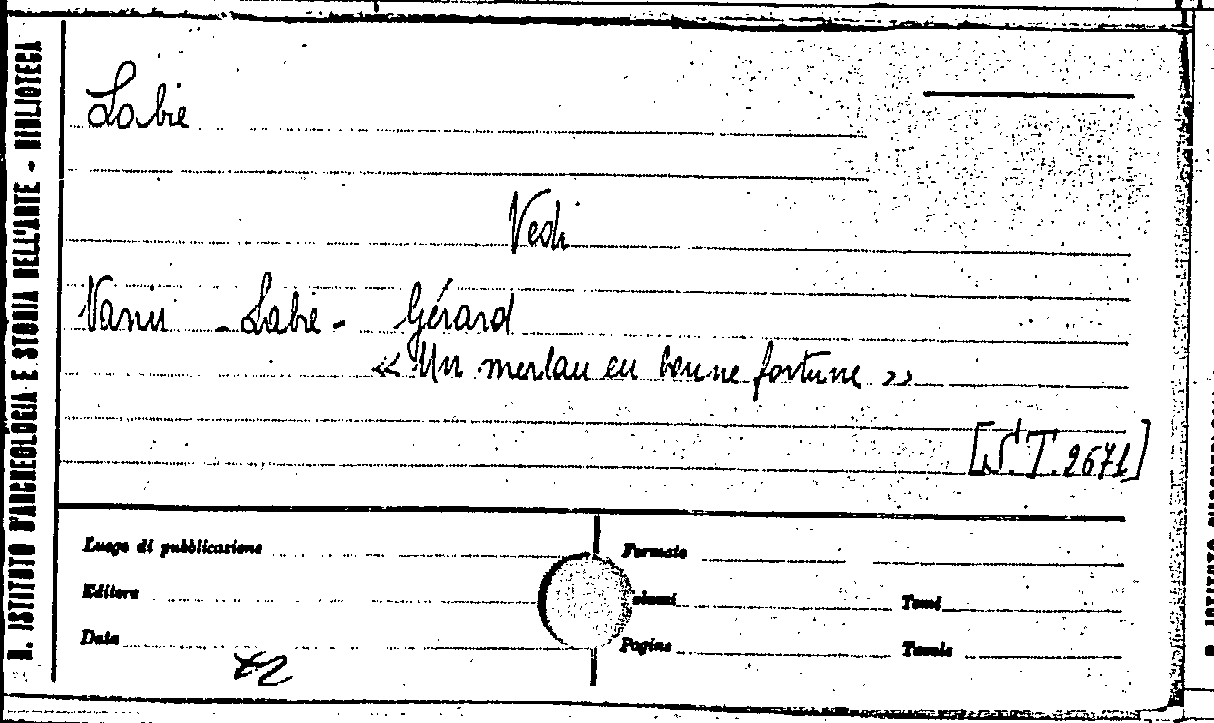 R. ISTITUTO D'ARCHEOLOGIA E STORIA DELL'ARTE - BIBLIOTECA
Labie
Vedi
Vanu - Labie - Gérard
« Un merlau en bonne fortune »
[N.T.2671]
Luogo di pubblicazione
Formato
Editore
Tomi
Data
Pagine
Tavole